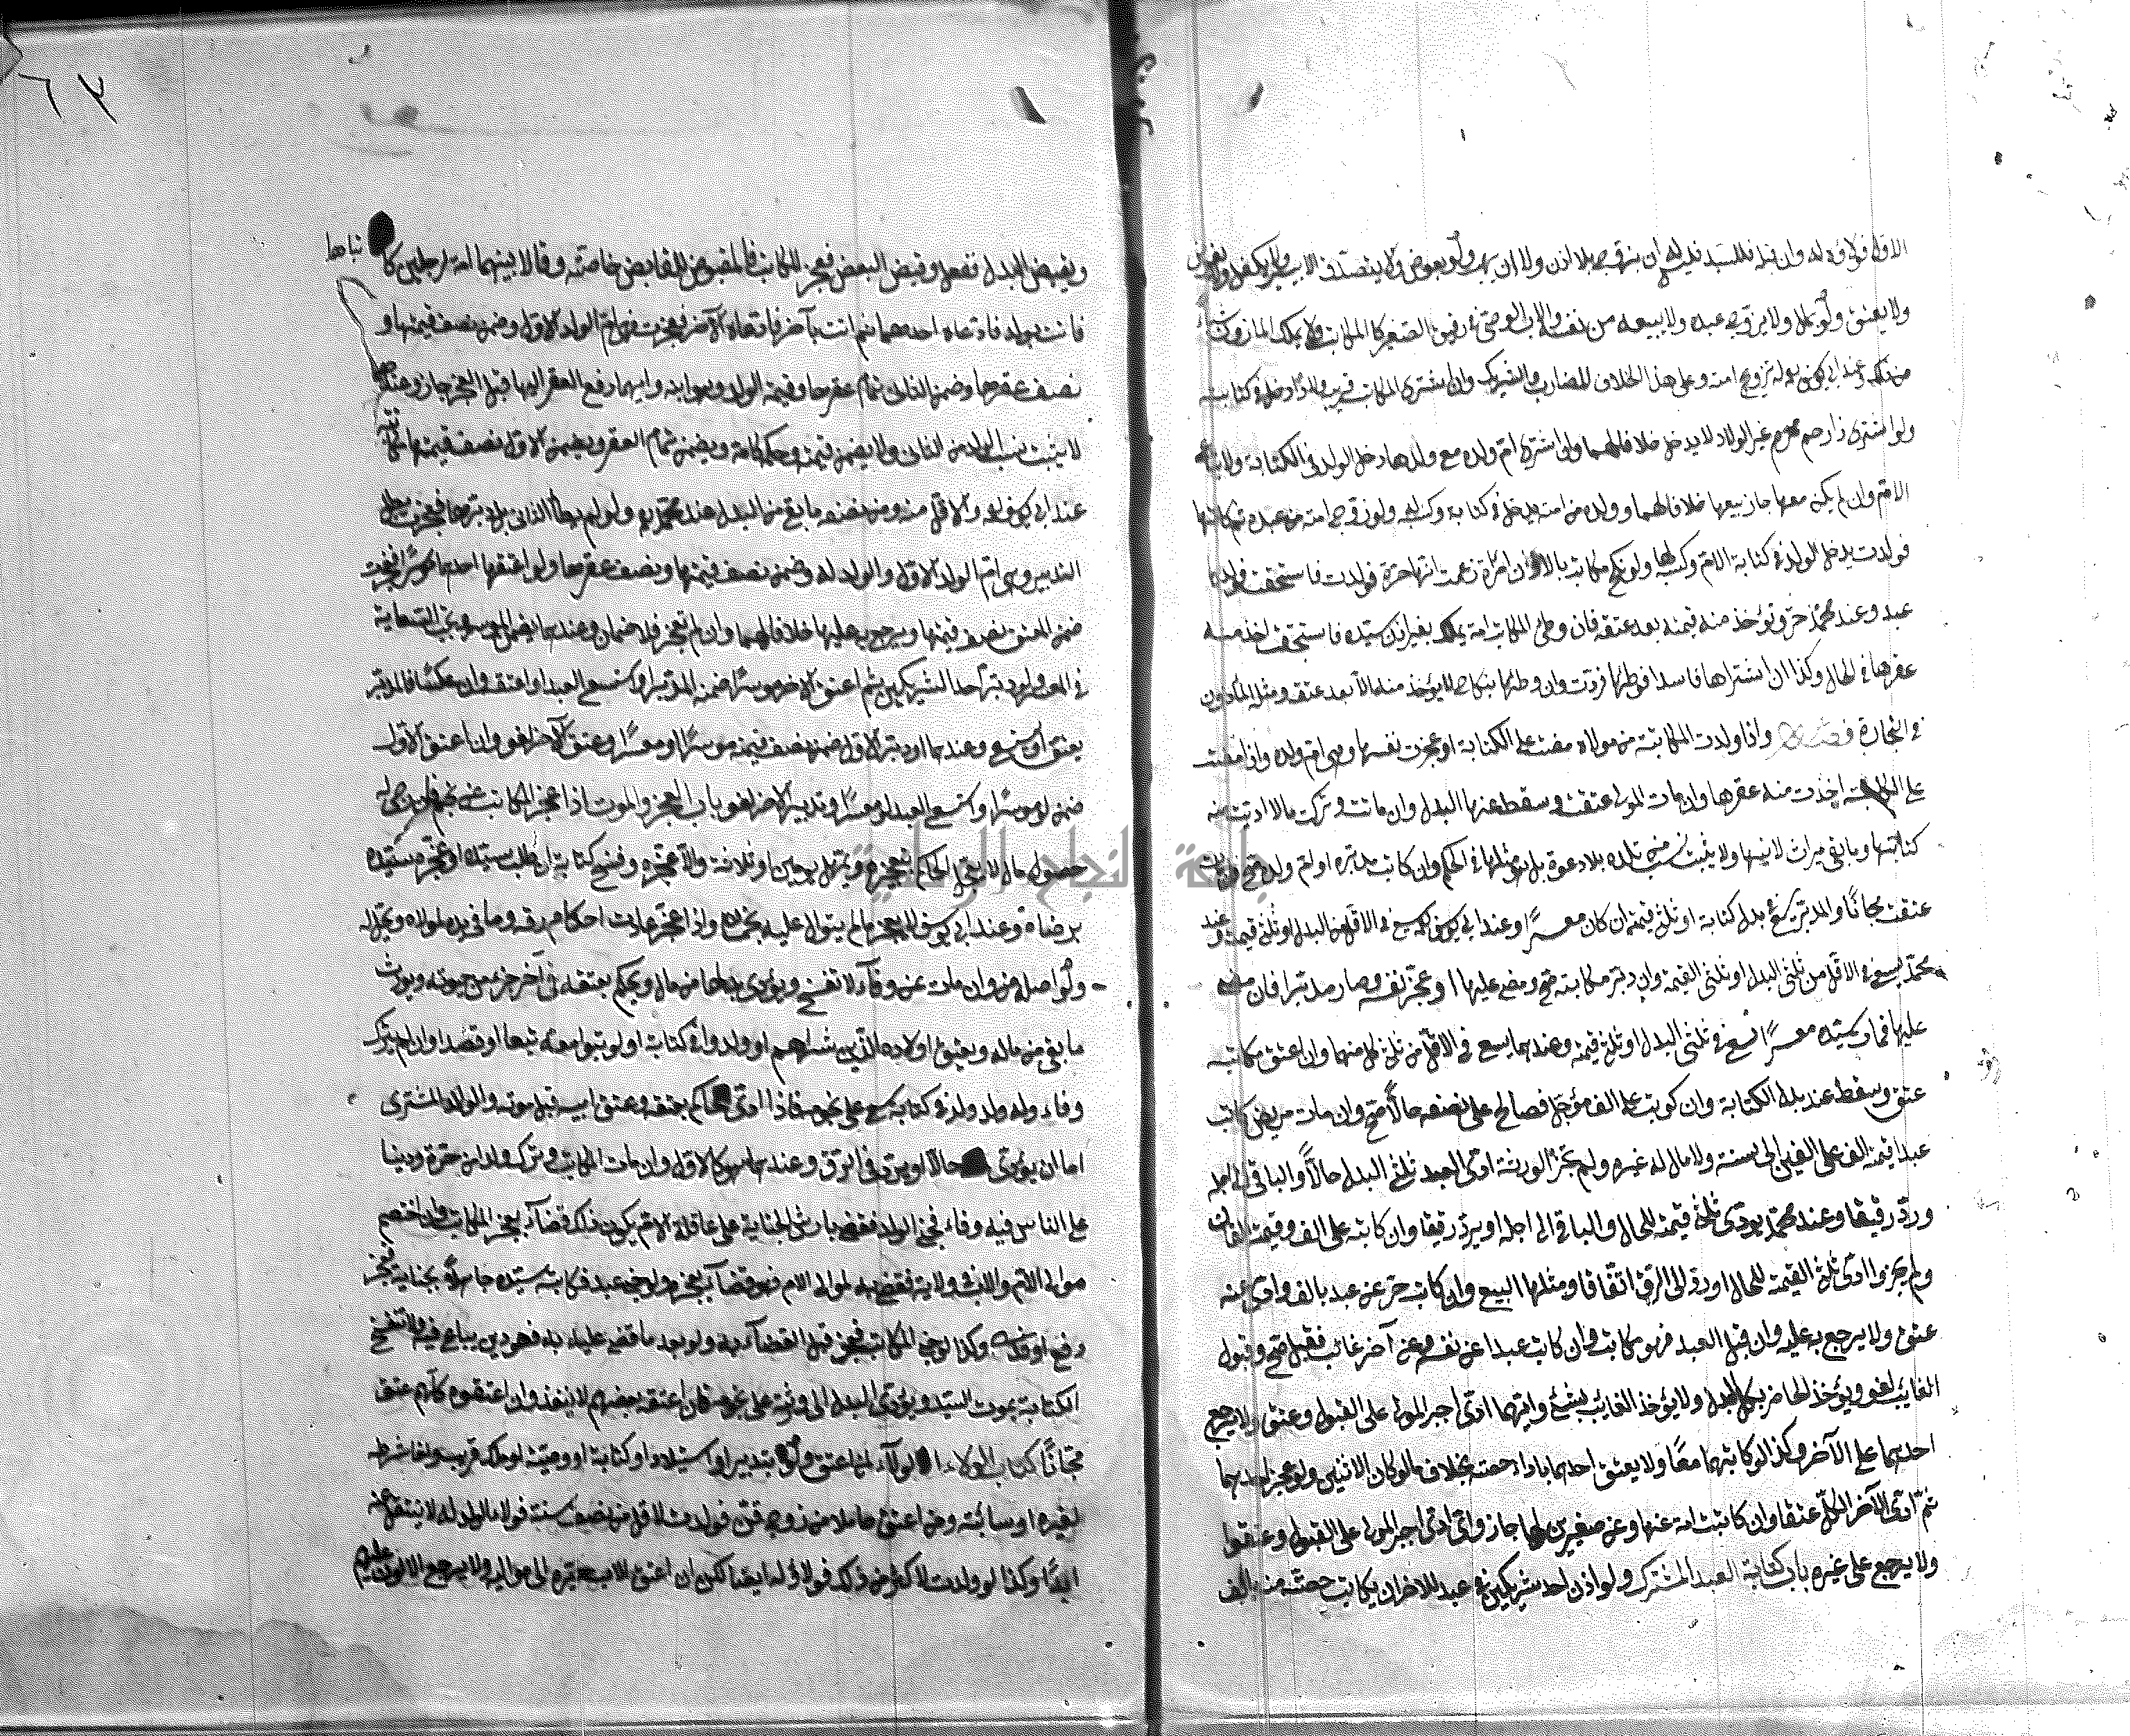 الاول فولاؤه له وان قبله فللسيد فليس له ان يتزوج بلا اذن ولا ان يهب ولو بعوض ولا يتصدق الا بيسير ولا يكفل ولا يقرض
ولا يعتق ولو بمال ولا يزوج عبده ولا يبيعه من نفسه والاب والوصي في رقيق الصغير كالمكاتب ولا يملك الماذون شيئا
من ذلك وعند ابي يوسف له تزويج امته وعلى هذا الخلاف المضارب والشريك وان اشترى المكاتب قريبه ولادا دخل في كتابته
ولو اشترى ذا رحم محرم غير الولاد لا يدخل خلافا لهما وان اشترى ام ولده مع ولدها دخل الولد في الكتابة ولا تباع
الام وان لم يكن معها جاز بيعها خلافا لهما وولده من امته يدخل في كتابته وكسبه له ولو زوج امته من عبده ثم كاتبها
فولدت يدخل الولد في كتابة الام وكسبه لها ولو نكح مكاتب بالاذن امراة زعمت انها حرة فولدت فاستحقت فولدها
عبد وعند محمد حر وتؤخذ منه قيمته بعد عتقه فان وطئ المكاتب امة بملك بغير اذن سيده فاستحقت اخذ منه
عقرها في الحال وكذا ان اشتراها فاسدا فوطئها فردت وان وطئها بنكاح لا يؤخذ منه الا بعد عتقه ومثله الماذون
في التجارة فصل واذا ولدت المكاتبة من مولاه مضت على الكتابة او عجزت نفسها وهي ام ولده واذا مضت
على الكتابة اخذت منه عقرها وان مات المولى عتقت وسقط عنها البدل وان ماتت وتركت مالا اديت منه
كتابتها وما بقي ميراث لابنها ولا يثبت نسب من تلده بلا دعوة بل هو مثلها في الحكم وان كاتب مدبره او ام ولده صح فان مات
عتقت مجانا والمدبر يسعى في بدل كتابته او ثلثي قيمته ان كان معسرا وعند ابي يوسف يسعى في الاقل من البدل او ثلثي قيمته وعند
محمد يسعى في الاقل من ثلثي البدل او ثلثي القيمة وان دبر مكاتبه صح ومضى عليها او عجز نفسه وصار مدبرا فان مضى
عليها فمات سيده معسرا يسعى في ثلثي البدل او ثلثي قيمته وعندهما يسعى في الاقل من ثلثي كل منهما وان اعتق مكاتبه
عتق وسقط عنه بدل الكتابة وان كوتب على الف مؤجل فصالح على نصفه حالا صح وان مات مريض كاتب
عبدا قيمته الف على الفين الى سنة ولا مال له غيره ولم يجز الورثة ادى العبد ثلثي البدل حالا والباقي الى اجله
ورد رقيقا وعند محمد يؤدي ثلثي قيمته للحال والباقي الى اجله او يرد رقيقا وان كاتبه على الف وقيمته الفان
ولم يجيزوا ادى ثلثي القيمة للحال او رد الى الرق اتفاقا ومثلها البيع وان كاتب حر عن عبد بالف وادى عنه
عتق ولا يرجع به عليه وان قبل العبد فهو مكاتب وان كاتب عبدا عن نفسه وعن آخر غائب فقبل صح وقبول
الغائب لغو ويؤخذ الحاضر بكل البدل ولا يؤخذ الغائب بشئ وايهما ادى اجبر المولى على القبول وعتق ولا يرجع
احدهما على الآخر وكذا لو كاتبهما معا ولا يعتق احدهما باداء حصته بخلاف ما لو كان الاثنين ولو عجز احدهما
ثم ادى الآخر الكل عتقا وان كاتبت امة عنها وعن صغيرين لها جاز واي ادى اجبر المولى على القبول وعتقوا
ولا يرجع على غيره باب كتابة العبد المشترك ولو اذن احد شريكين في عبد للاخر ان يكاتب حصته منه بالف
ويقبض البدل ففعل وقبض البعض فعجز المكاتب فالمقبوض للقابض خاصة وقالا بينهما امة لرجلين كاتباها
فاتت بولد فادعاه احدهما ثم اتت بآخر فادعاه الآخر فعجزت فهي ام الولد للاول وضمن نصف قيمتها و
نصف عقرها وضمن الثاني تمام عقرها وقيمة الولد وهو ابنه وايهما دفع العقر اليها قبل العجز جاز وعندهما
لا يثبت نسب الولد من الثاني ولا يضمن قيمته وحكمه كامه ويضمن تمام العقر ويضمن الاول نصف قيمتها مكاتبة
عند ابي يوسف والاقل منه ومن نصف ما بقي من البدل عند محمد ولو لم يطأ الثاني بل دبرها فعجزت بطل
التدبير وهي ام الولد للاول والولد له وضمن نصف قيمتها ونصف عقرها ولو اعتقها احدهما موسرا فعجزت
ضمن المعتق نصف قيمتها ويرجع به عليها خلافا لهما وان لم تعجز فلا ضمان وعندهما يضمن الموسر وتجب السعاية
في المعسر ولو دبر احد الشريكين ثم اعتق الآخر موسرا ضمنه المدبر او استسعى العبد او اعتقه وان عكسا فالمدبر
يعتق او يستسعي وعندهما ان دبر الاول ضمن نصف قيمته موسرا او معسرا وعتق الآخر لغو وان اعتق الاول
ضمن لو موسرا واستسعى العبد لو معسرا وتدبير الآخر لغو باب العجز والموت اذا عجز المكاتب عن نجم فان رجي له
حصول مال لا يعجل الحاكم بتعجيزه ويمهل يومين او ثلاثة والا عجزه وفسخ كتابته ان طلب سيده او عجزه سيده
برضاه وعند ابي يوسف لا يعجز ما لم يتوال عليه نجمان واذا عجز عادت احكام رقه وما في يده لمولاه ويحل له
ولو اصله من وان مات عن وفاء لا تفسخ ويؤدى بدلها من ماله ويحكم بعتقه في آخر جزء من حيوته ويورث
ما بقي من ماله ويعتق اولاده الذين شراهم او ولدوا في كتابته او كوتبوا معه تبعا او قصدا وان لم يترك
وفاء وله ولد ولد في كتابته سعى على نجومه فاذا ادى حكم بعتقه وعتق ابيه قبل موته والولد المشترى
اما ان يؤدي حالا او يرد في الرق وعندهما هو كالاول وان مات المكاتب وترك ولدا من حرة ودينا
على الناس فيه وفاء فجنى الولد فقضي بارش الجناية على عاقلة الام لا يكون ذلك قضاء بعجز المكاتب وان اختصم
موالي الام والاب في ولائه فقضي به لموالي الام فهو قضاء بعجزه ولو جنى عبد فكاتبه سيده جاهلا بجنايته فعجز
دفع او فدى وكذا لو جنى المكاتب فعجز قبل القضاء به ولو بعد ما قضي عليه به فهو دين يباع فيه ولا تنفسخ
الكتابة بموت السيد ويؤدي البدل الى ورثته على نجومه فان اعتقه بعضهم لا ينفذ وان اعتقوه كلهم عتق
مجانا كتاب الولاء الولاء لمن اعتق ولو بتدبير او استيلاد او كتابة او وصية او ملك قريب ولغا شرطه
لغيره او سائبة ومن اعتق حاملا من زوج قن فولدت لاقل من نصف سنة فولاء الولد له لا ينتقل عنه
ابدا وكذا لو ولدت لاكثر من ذلك فولاؤه له ايضا لكن ان اعتق الاب جره الى مواليه ولا يرجع الاولون عليهم